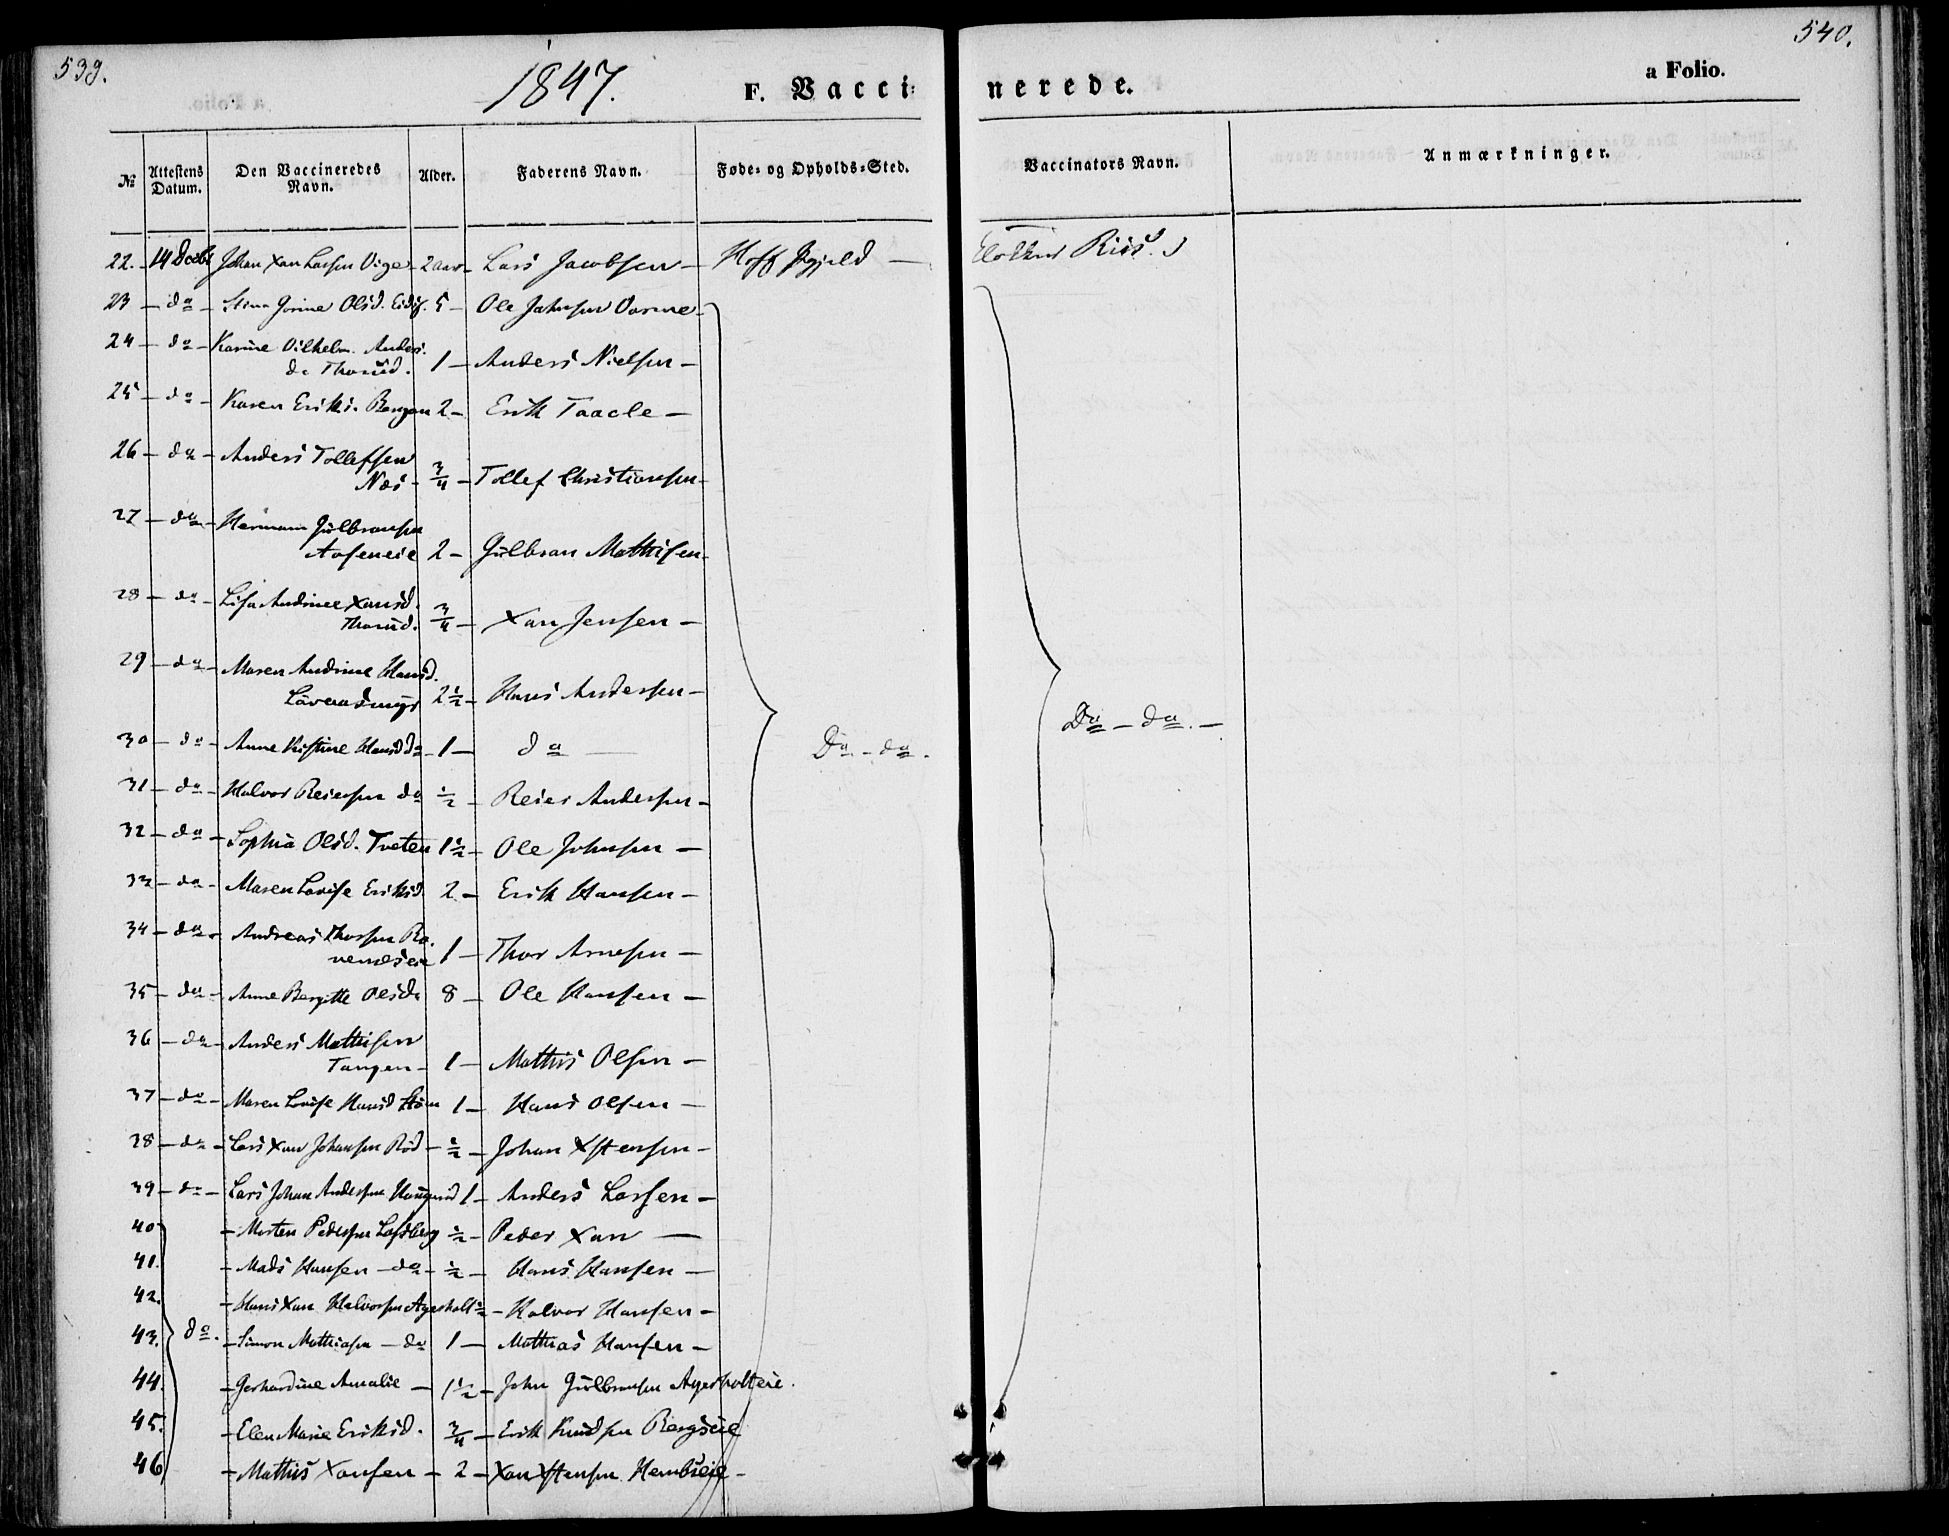 539.
1847.
F. Vacci-
nerede.
a Folio.
540.
№ Attestens Datum. Den Vaccineredes Navn. Alder. Faderens Navn. Føde- og Opholds-Sted. Vaccinators Navn. Anmærkninger.
22. 14 Decbr Johan Xan Larsen 2 aar Lars Jacobsen Hoff Pgjeld Klokker Riis.
23 do Olsd. 5 Ole Johnsen
24 do Karine Vilhelm. Anders.
d. Thorud. 1 Anders Nielsen
25 do Karen Eriks. 2 Erik Taacle
26 do Anders Tollefsen
Næs 3/4 Tollef Christiansen
27 do Herman Gulbransen
Aaseneie 2 Gulbran Mathisen
28 do Lisa Andrine Xansd.
Thorud. 3/4 Xan Jensen
29 do Maren Andrine Hansd.
2 1/2 Hans Andersen
30 do Anne Kistine Hansd do 1 do Do do.
31 do Halvor Reiersen do 1/2 Reier Andersen Do do.
32 do Sophia Olsd. Tveten 1 1/2 Ole Johnsen
33 do Maren Lovise Eriksd. 2 Erik Hansen
34 do Andreas Thorsen Ro-
1 Thor Arnesen
35 do Anne Bergitte Olsd. 8 Ole Hansen
36 do Anders Mathisen
Tangen 1 Mathis Olsen
37 do Maren Lovise Hansd 1 Hans Olsen
38 do Lars Xan Johansen Rød 1/2 Johan Xstensen
39 do Lars Johan Andersen Haugerud 1 Anders Larsen
40 Morten Pedersen 1/2 Peder Xan
41. Mads Hansen do 1/2 Hans Hansen
42. Hans Xan Halvorsen Agerholt 1/2 Halvor Hansen
43. do. Simon Mathiasen do 1 Mathias Hansen
44. Gerhardine Amalie 1 1/2 John Gulbransen Agerholteie.
45. Elen Marie Eriksd. 3/4 Erik Knudsen Bergseie
46 Mathis Xansen 2 Xan Xstensen Hembseie